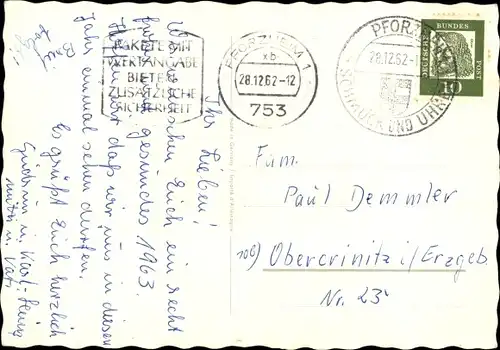 Ihr Lieben!
Wir wünschen Euch ein recht
frohes, gesundes 1963.
daß wir uns in diesem
Jahr einmal sehen dürfen.
Es grüßt Euch herzlich
Gudrun u. Karl-Heinz
Mutti u. Vati
PAKETE MIT
WERTANGABE
BIETEN
ZUSÄTZLICHE
SICHERHEIT
PFORZHEIM 1
xb
28.12.62-12
753
PFORZHEIM
28.12.62-1
SCHMUCK UND UHREN
DEUTSCHE BUNDESPOST
10
Fam.
Paul Demmler
10b) Obercrinitz i/Erzgeb.
Nr. 23